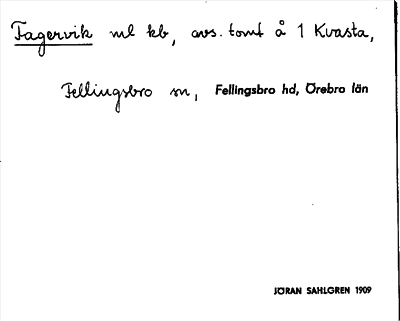 Fagervik ml kb, avs. tomt å 1 Kvasta,
Fellingsbro sn, Fellingsbro hd, Örebro län
JÖRAN SAHLGREN 1909